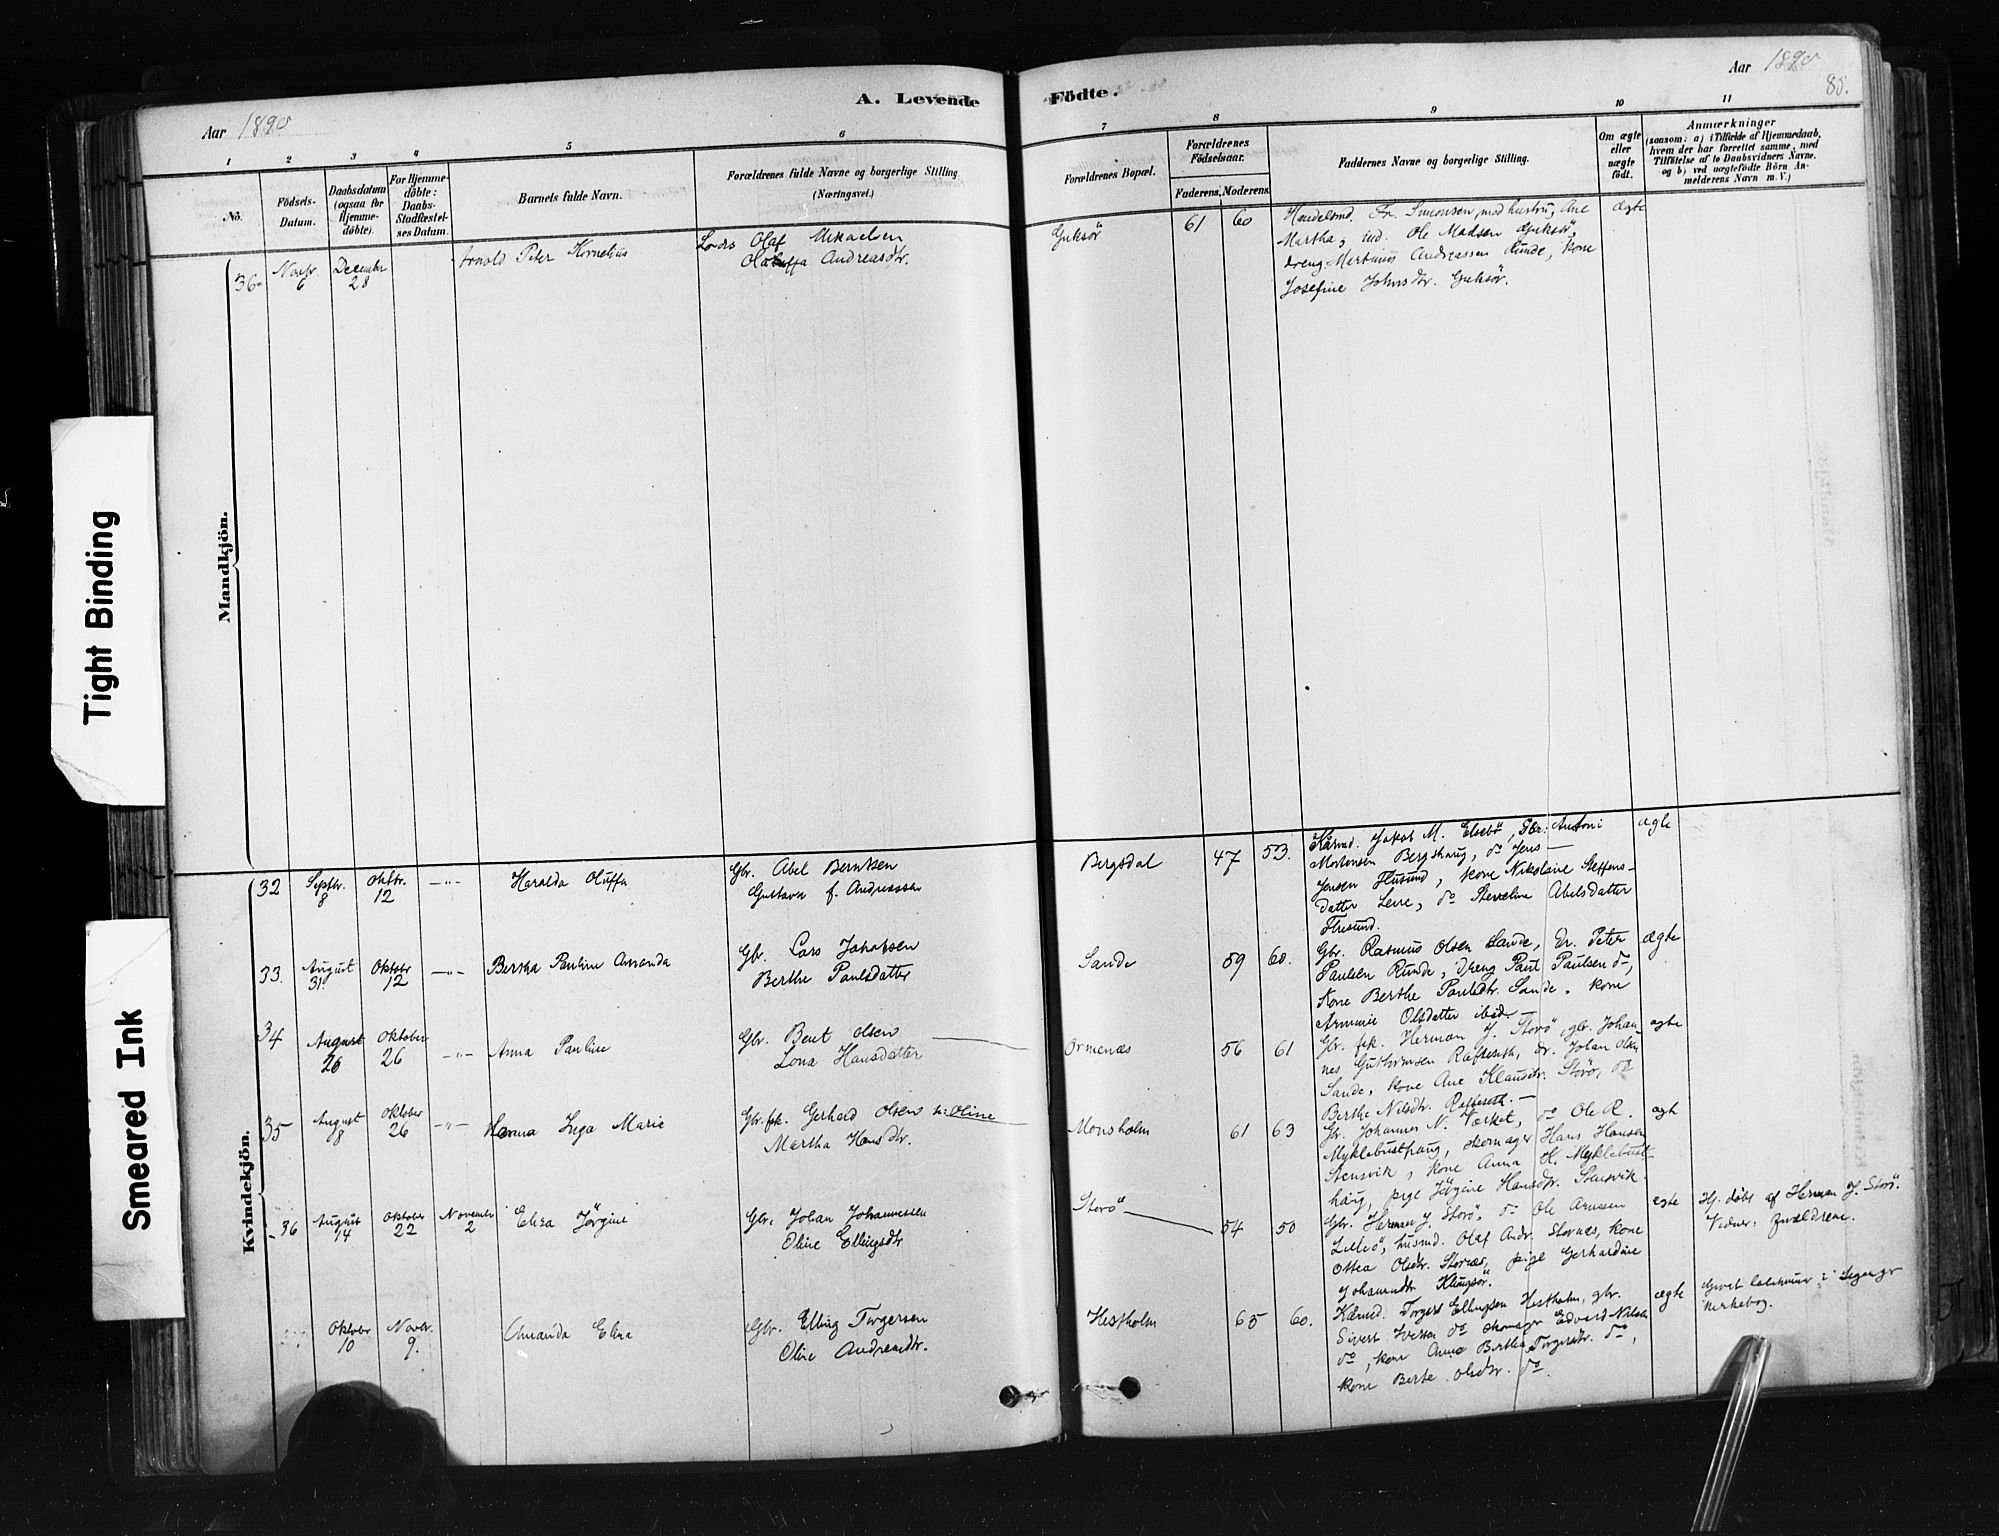 Aar 1890
A. Levende Födte.
Aar 1890
85.
1 2 3 4 5 6 7 8 9 10 11
No.
Födsels-
Datum.
Daabsdatum
(ogsaa for
Hjemme-
döbte).
For Hjemme-
döbte:
Daabs-
Stadfæstel-
ses Datum.
Barnets fulde Navn.
Forældrenes fulde Navne og borgerlige Stilling
(Næringsvei.)
Forældrenes Bopæl.
Forældrenes
Födselsaar.
Faderens. Moderens.
Faddernes Navne og borgerlige Stilling.
Om ægte
eller
uægte
födt.
Anmærkninger
(saasom: a) i Tilfælde af Hjemmedaab,
hvem der har forrettet samme, med
Tilföielse af to Daabsvidners Navne.
og b) ved uægtefödte Börn An-
melderens Navn m. V.)
Mandkjön.
36
Novbr.
6
December
28
Arnold Peter Kornelius
Olaf Mikaelsen
Andreasdtr.
Guksör
61
60
Handelsmd. Fr. Simonsen med hustru Ane
Martha, ind. Ole Madsen Guksör,
dreng Martinus Andreassen Runde, kone
Josefine Johnsdtr. Guksör.
ægte
Kvindekjön.
32
Septbr.
8
Oktbr.
12
—"—
Haralda Oluffa
Gbr. Abel Berntsen
Gustava f. Andreassen
Bergsdal
47
53.
Kårmd. Jakob M. Elsebö, Gbr. Antoni
Mortensen Bergshaug, do Jens
Jensen Flusund, kone Nikoline Steffens-
datter Leire, do Abelsdatter
Flusund.
ægte
33.
August
31.
Oktobr
12
—"—
Bertha Pauline Amanda
Gbr. Lars Johansen
Berthe Paulsdatter
Sande
59
60.
Gbr. Rasmus Olsen Sande, Dr. Peter
Paulsen Runde, Dreng Paul Paulsen do,
Kone Berthe Paulsdtr. Sande, kone
Olsdatter ibid.
ægte
34
August
26
Oktober
26
—"—
Anna Pauline
Gbr. Bent Olsen
Lona Hansdatter
Ormenæs
56
61
Gbr. fsk. Herman J. Storö, gbr. Johan-
nes Guttormsen Rafteseth, dr. Johan Olsen
Sande, kone Ane Klausdtr. Storö, do
Berthe Nilsdtr. Rafteseth. —
ægte
35
August
8
Oktober
26
—"—
Inga Marie
Gbr. fsk. Gerhard Olsen Oline
Martha Hansdtr.
Monsholm
61
63
Gbr. Johannes N. Vorket, do Ole R.
Myklebusthaug, skomager Hans Hansen
Stensvik, kone Anna H. Myklebust-
haug, pige Jörgine Hansdtr. Stensvik.
ægte
36
August
14
Oktober
22
November
2
Elisa Jörgine
Gbr. Johan Johannessen
Oline Ellingsdtr
Storö
54
50
Gbr. Herman J. Storö, do Ole Arnesen
Lilleö, husmd. Olaf Andr. Stornæs, kone
Ottea Olsdtr. Stornæs, pige Gerhardine
Johansdtr Klungsör.
ægte
Hj. döbt af Herman J. Storö.
Vidner: Forældrene.
Oktobr
10
Novbr.
9.
Amanda Elisa
Gbr. Elling Torgersen
Oline Andreasdtr.
Hestholm
65
60.
Kårmd. Torgers Ellingsen Hestholm, gbr.
Sivert Iversen do skomager Edvard Nilsen
do, kone Anna Bertha Torgersdtr. do,
kone Berte Olsdtr. do.
ægte
Tight Binding
Smeared Ink